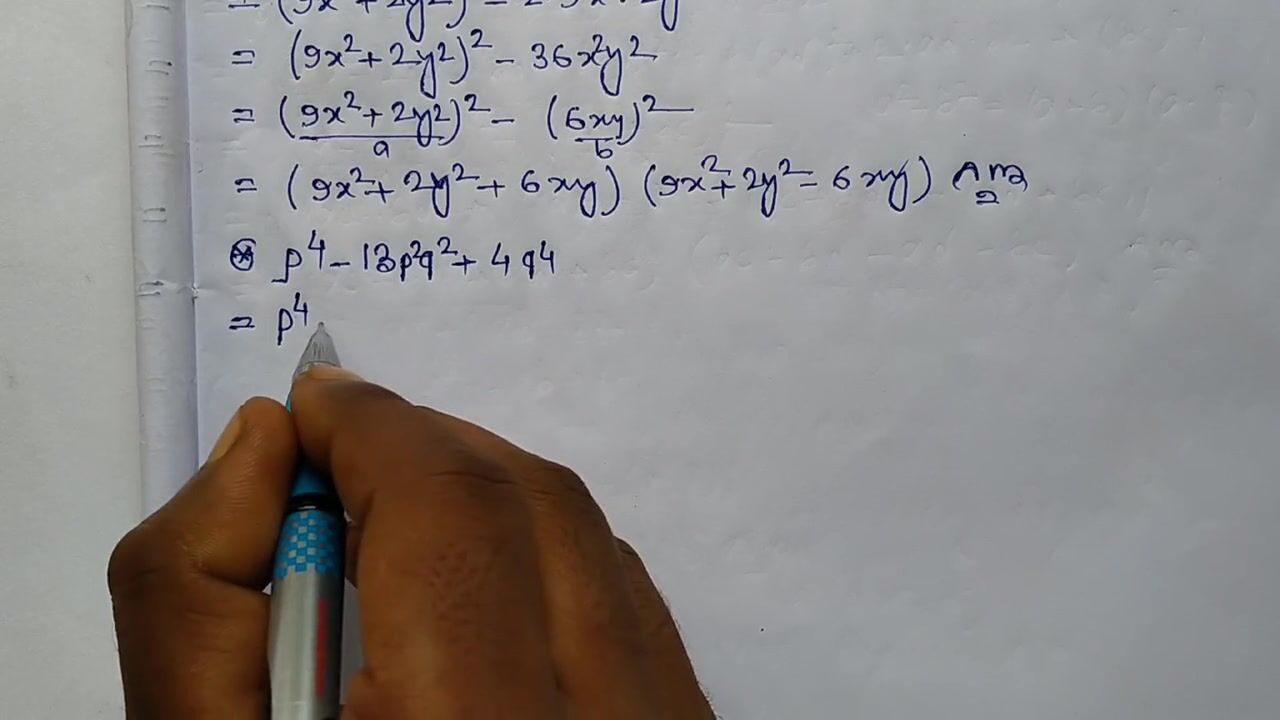 = (9x²+2y²)² - 36x²y²
= (9x²+2y²)² - (6xy)²
a b
= (9x²+2y²+6xy) (9x²+2y²-6xy) Ans
p⁴-13p²q²+4q⁴
= p⁴